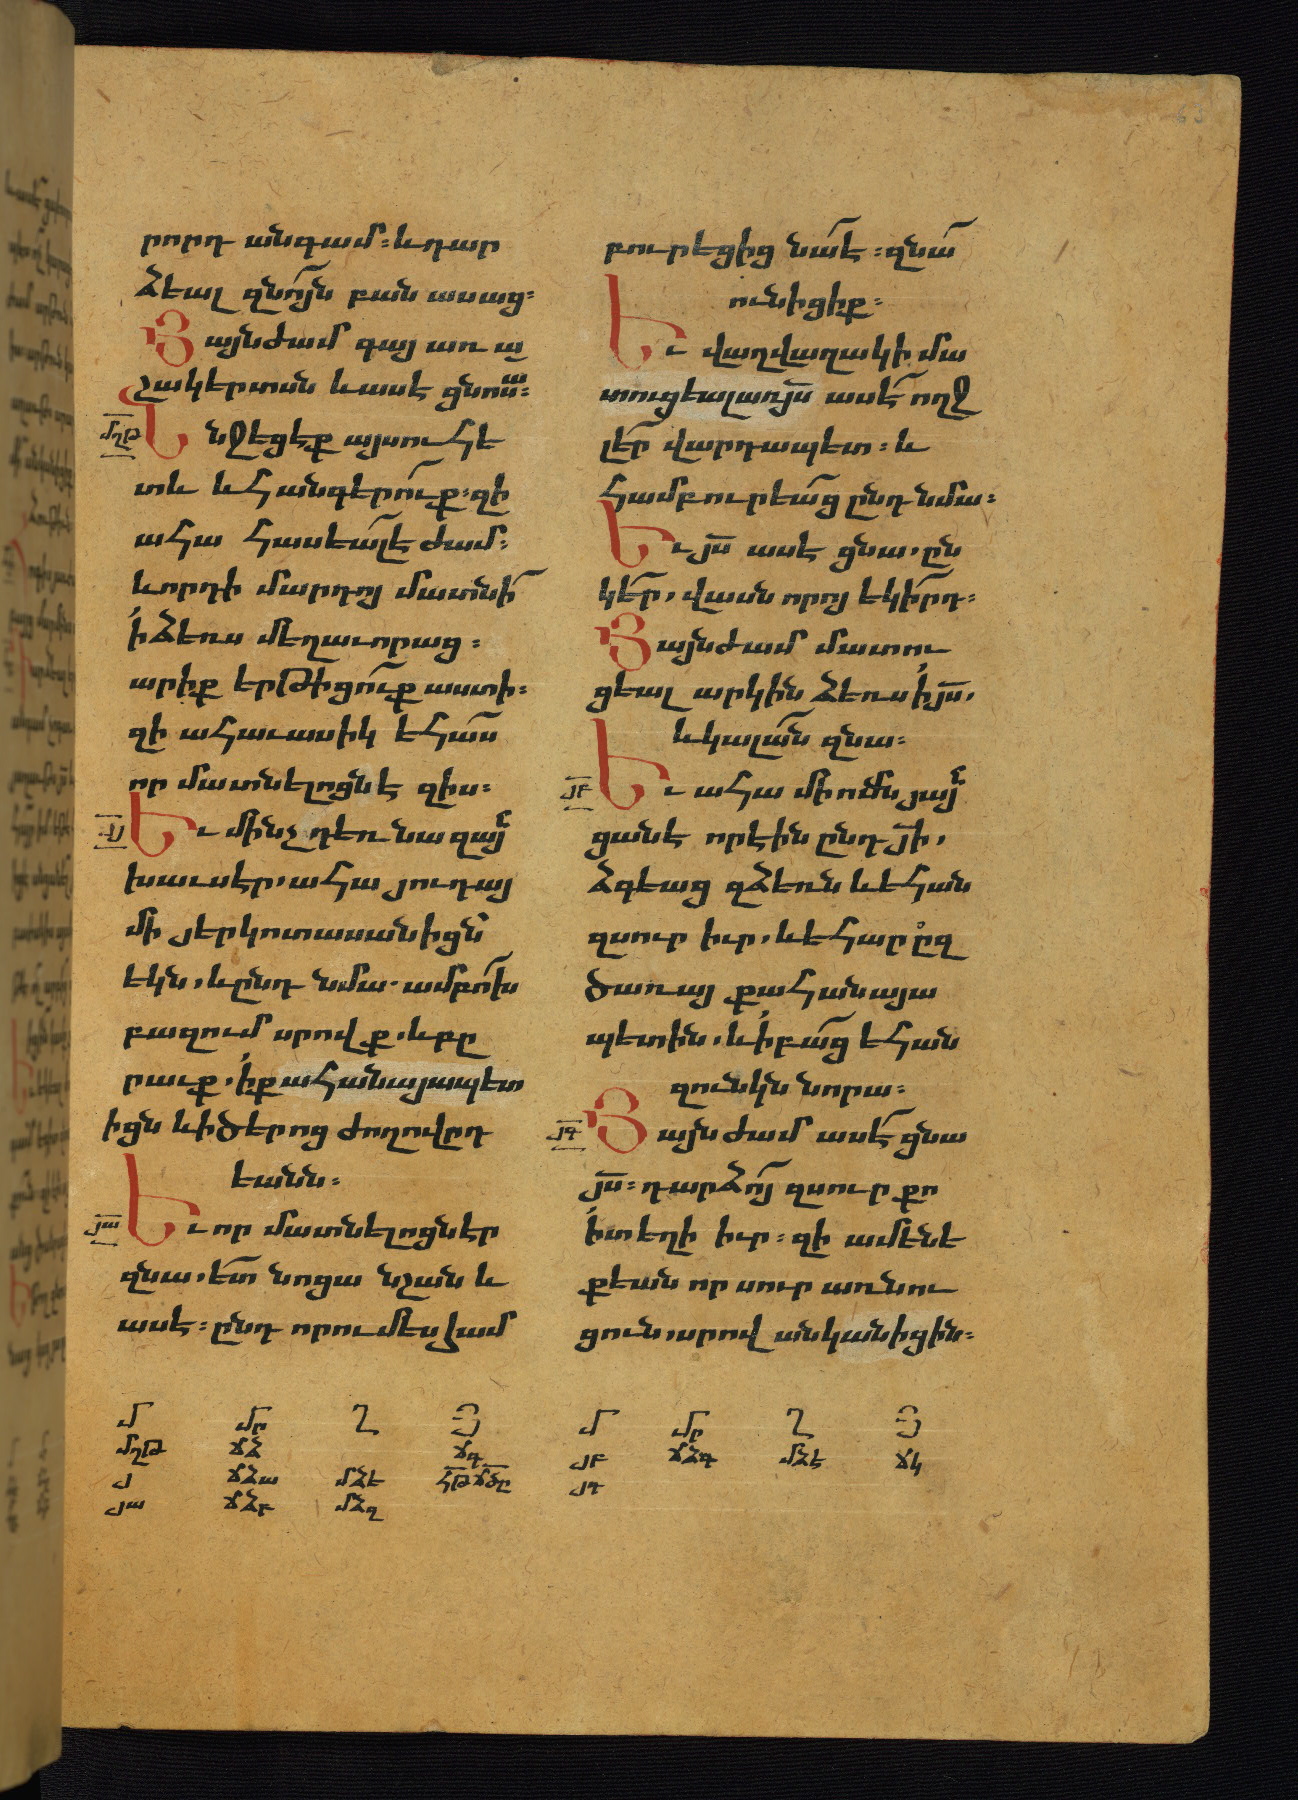 րորդ անգամ։ և դար
ձեալ զնո՜յն բան ասաց։
Յայնժամ գայ առ ա
շակերտսն և ասէ ցնոսա։
մղթ Ննջեցէք այսուհե
տև և հանգերո՜ւք։ զի
ահա հասեա՜լ է ժամ։
և որդի մարդոյ մատնի՜
ի ձեռս մեղաւորաց։
արիք երթիցո՜ւք աստի։
զի ահաւասիկ եհա՜ս
որ մատնելոցն է զիս։
յ Եւ մինչ դեռ նա զայն
խաւսէր, ահա յուդայ
մի յերկոտասանիցն
եկն, և ընդ նմա ամբո՜խ
բազում սրովք, և բը
րաւք, ի քահանայապետ
իցն և ի ծերոց ժողովըդ
եանն։
յա Եւ որ մատնելոցն էր
զնա, ետ նոցա նշան և
ասէ։ ընդ որում ես համ
բուրեցից նա՜ է։ զնա՜
ունիցիք։
Եւ վաղվաղակի մա
տուցեալ առ յս ասէ՜ ողջ
լե՜ր վարդապետ։ և
համբուրեա՜ց ընդ նմա։
Եւ յս ասէ ցնա, ըն
կե՜ր, վասն որոյ եկի՜րդ։
Յայնժամ մատու
ցեալ արկին ձեռս ի յս,
և կալա՜ն զնա։
յբ Եւ ահա մի ոմն յայն
ցանէ որ էին ընդ յի,
ձգեաց զձեռն և եհան
զսուր իւր, և եհար ըզ
ծառայ քահանայա
պետին, և ի բա՜ց եհան
զունկն նորա։
յգ Յայնժամ ասէ՜ ցնա
յս։ դարձո՜յ զսուր քո
ի տեղի իւր։ զի ամենե
քեան որ սուր առնու
ցուն, սրով անկանիցին։
մ մր ղ յ մ մր ղ յ
մղթ ճձ ճգ յբ ճձգ մձէ ճկ
յ ճձա մձե հթ ճծը յգ
յա ճձբ մձզ